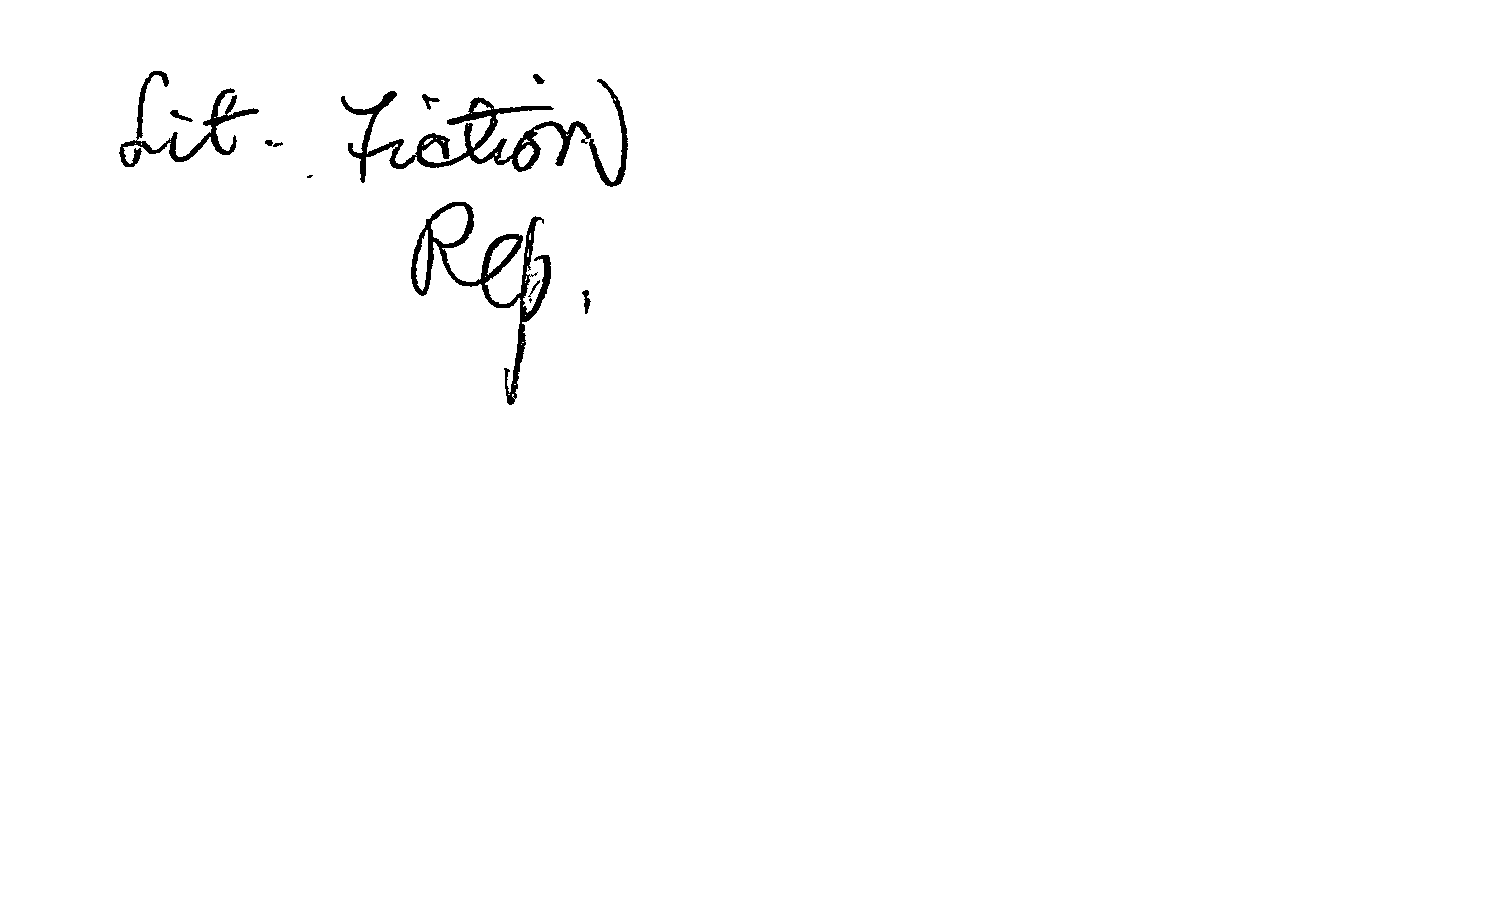 Lit. Fiction
Rep.